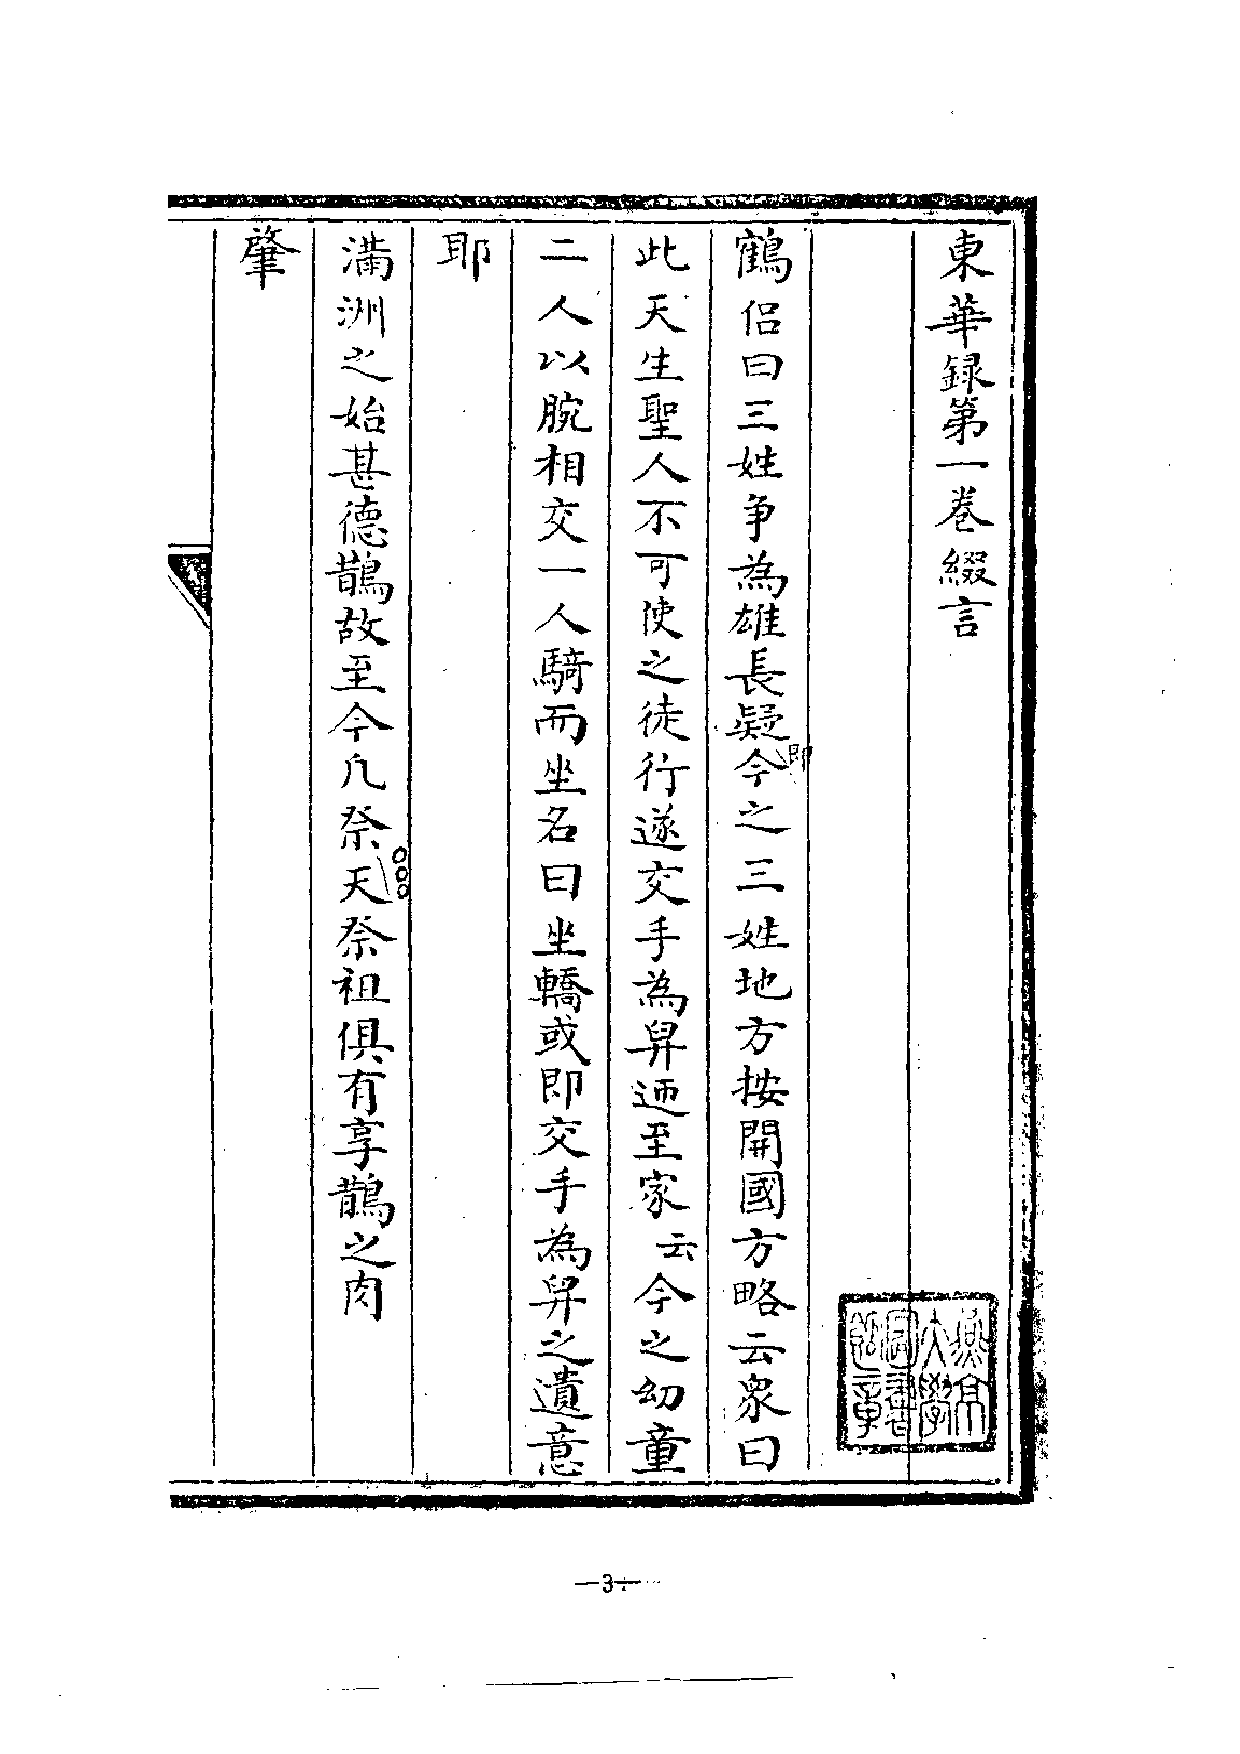 東華録第一卷綴言
鶴侣曰三姓争為雄長疑即今之三姓地方按開國方略云衆曰
此天生聖人不可使之徒行遂交手為舁迊至家云今之幼童
二人以腕相交一人騎而坐名曰坐轎或即交手為舁之遺意
耶
滿洲之始甚德鵲故至今凡祭天祭祖俱有享鵲之肉
肇
燕京大學圖書館章
—3—